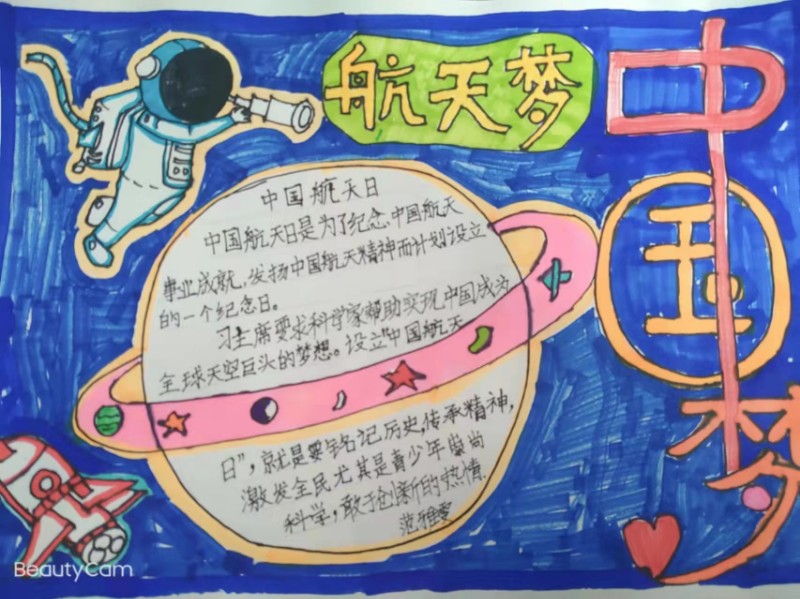 航天梦
中国梦
中国航天日
中国航天日是为了纪念中国航天
事业成就,发扬中国航天精神而计划设立
的一个纪念日。
习主席要求科学家帮助实现中国成为
全球天空巨头的梦想。设立"中国航天
日",就是要铭记历史,传承精神,
激发全民尤其是青少年崇尚
科学,敢于创新的热情.
范雅雯
BeautyCam